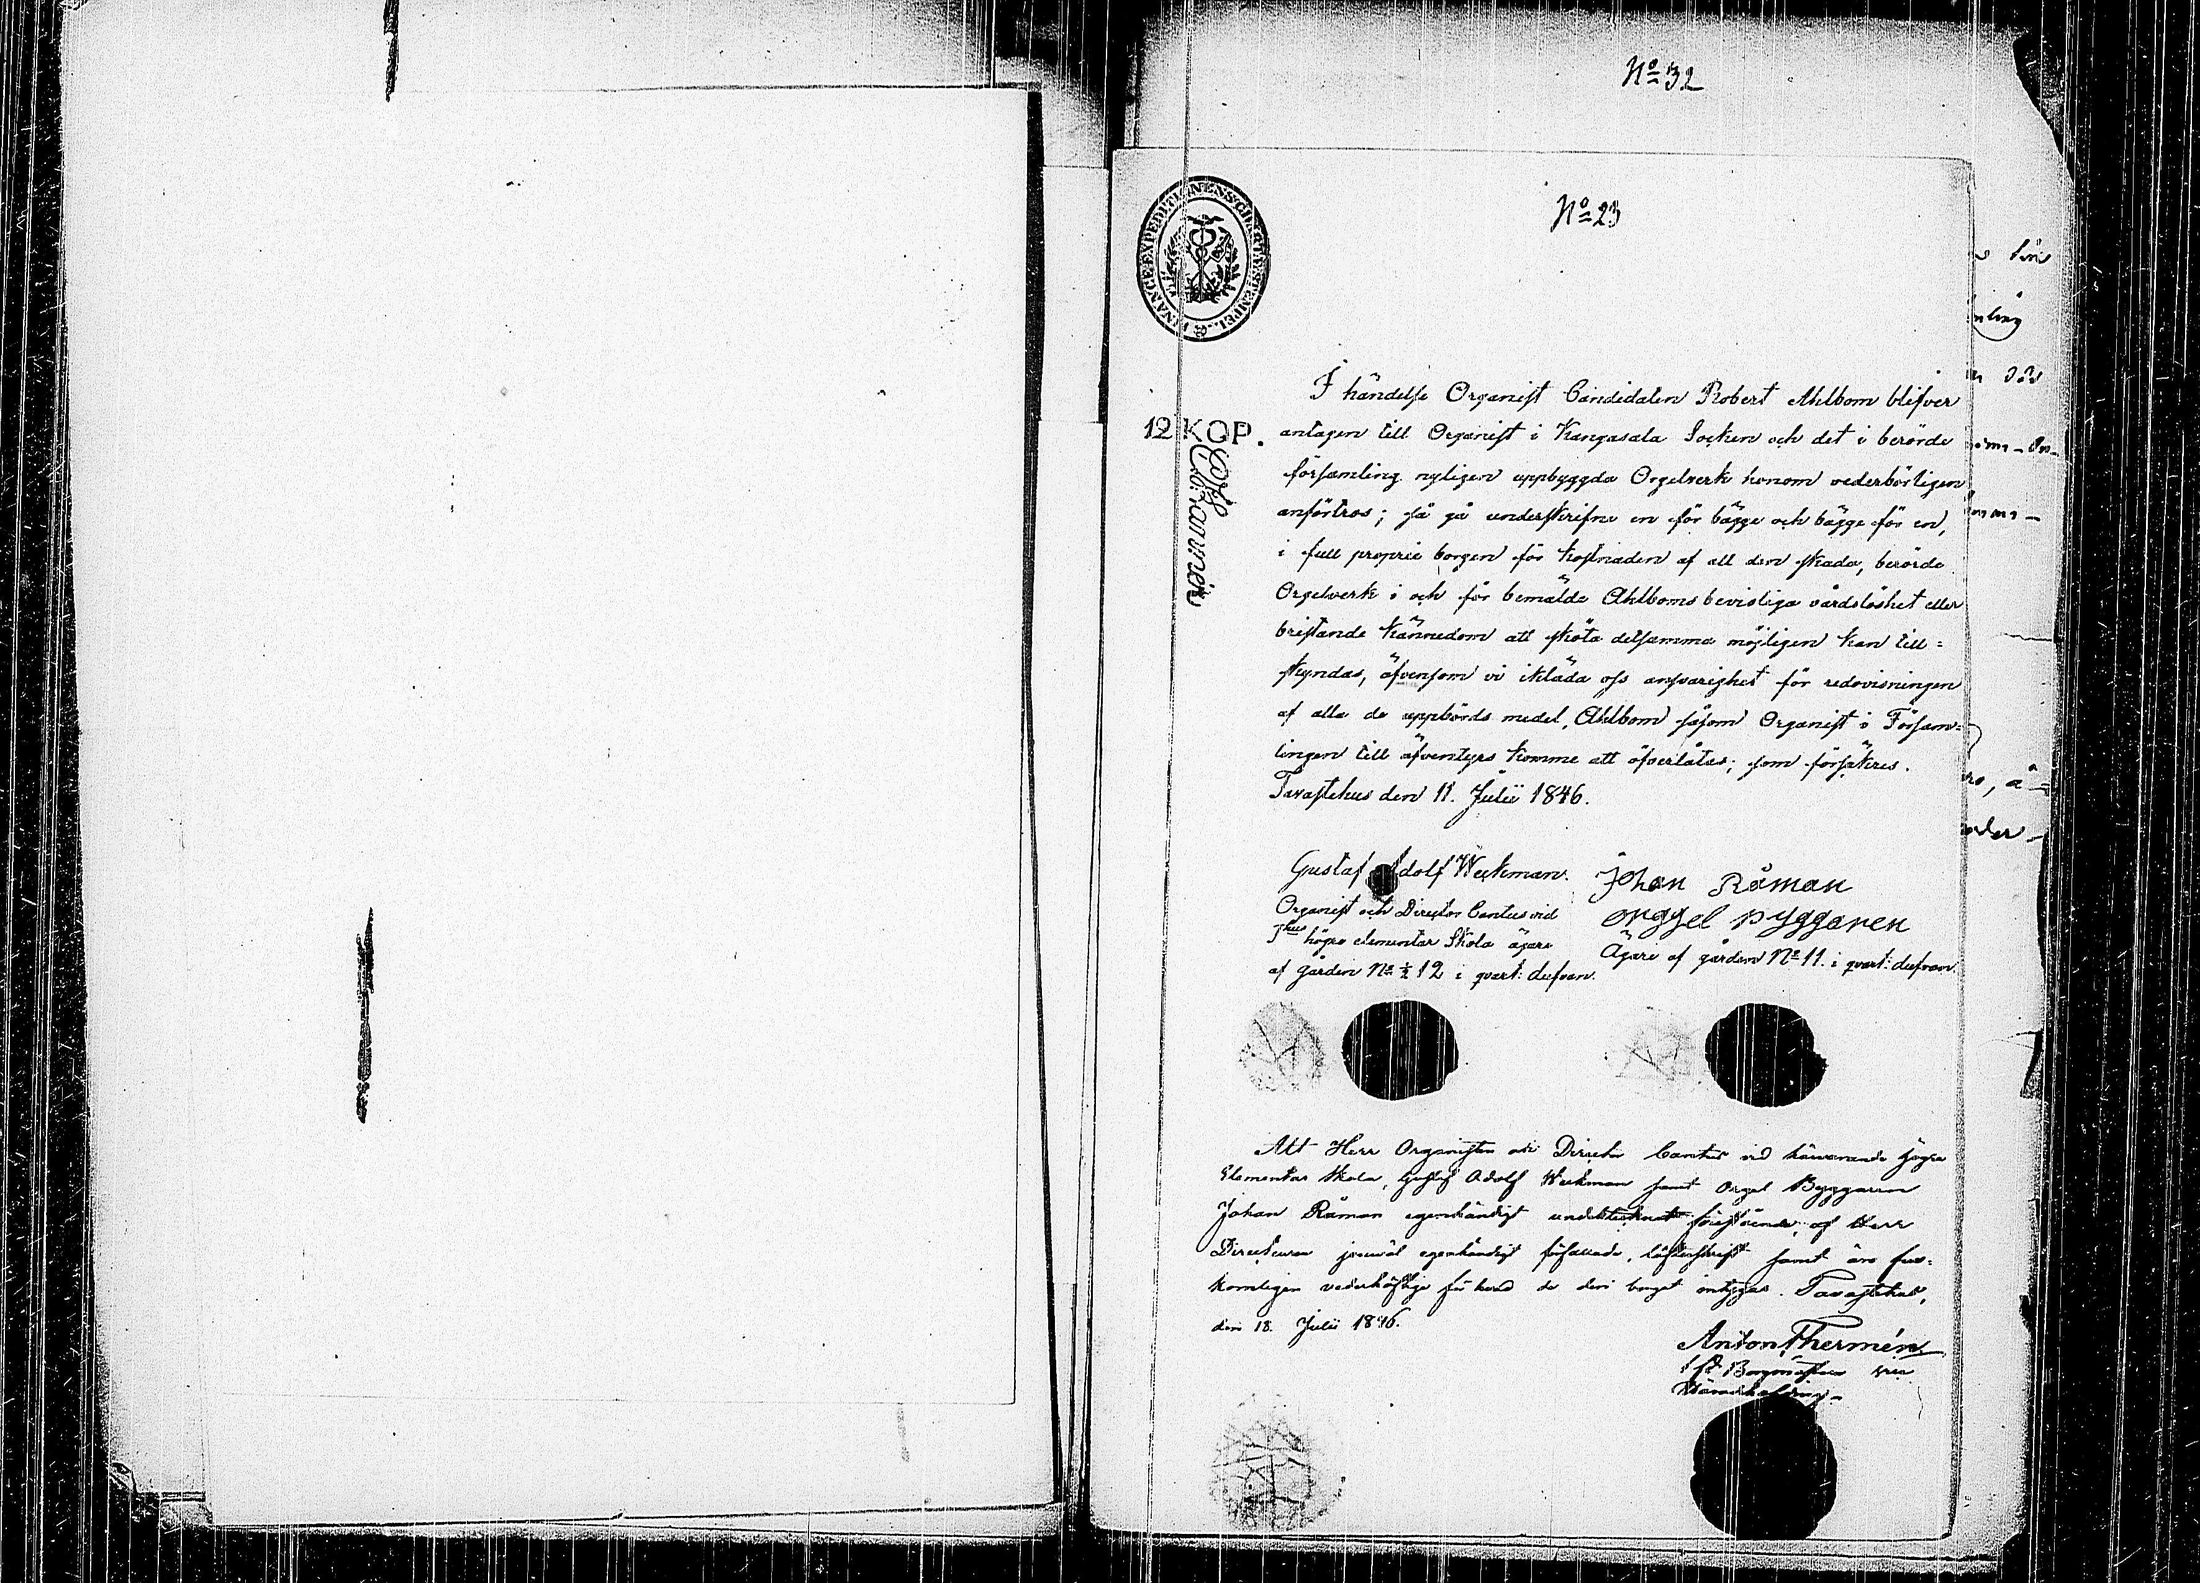 No 32
No 23
FINANCE EXPEDITIONENS CHARTÆ STEMPEL
12 KOP.
I händelse Organist Candidaten Robert Ahlbom blifver
antagen till Organist i Kangasala Socken och det i berörde
församling nyligen uppbyggda Orgelverk honom vederbörligen
anförtros; så gå underskrifne en för bägge och bägge för en,
i full proprie borgen för kostnaden af all den skada, berörde
Orgelverk i och för bemälde Ahlboms bevisliga vårdslöshet eller
bristande kännedom att sköta detsamma möjligen kan till=
skyndas, äfvensom vi ikläda oss ansvarighet för redovisningen
af alla de uppbörds medel, Ahlbom såsom Organist i Församl=
lingen till äfventyrs komme att öfverlåtas; som försäkres.
Tavastehus den 11. Julii 1846.
Gustaf Adolf Weckman.
Organist och Director Cantus vid
Thus högre elementar Skola ägare
af gården No ½ 12 i qvart: dufvan.
Johan Råman
orggel byggaren
Ägare af gården No 11. i qvart: dufvan.
Att Herr Organisten och Director Cantus vid härvarande högre
Elementar Skola, Gustaf Adolf Weckman samt Orgel Byggaren
Johan Råman egenhändigt undertecknat förestående, af Herr
Directeuren jemväl egenhändigt författade, löftesskrift samt äro full=
komligen vederhäftige för hvad de deri borgat intygas. Tavastehus,
den 18. Julii 1846.
Anton Thermén